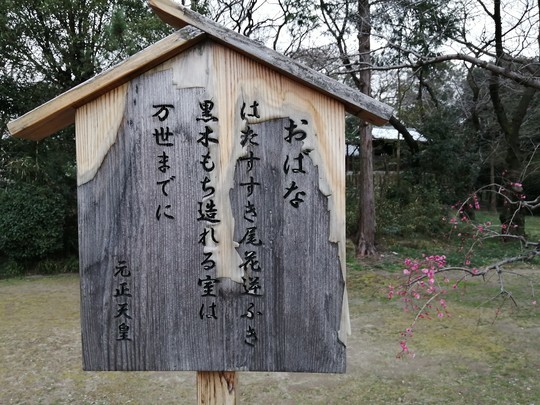 おばな
はたすすき尾花逆ふき
黒木もち造れる室は
万世までに
元正天皇